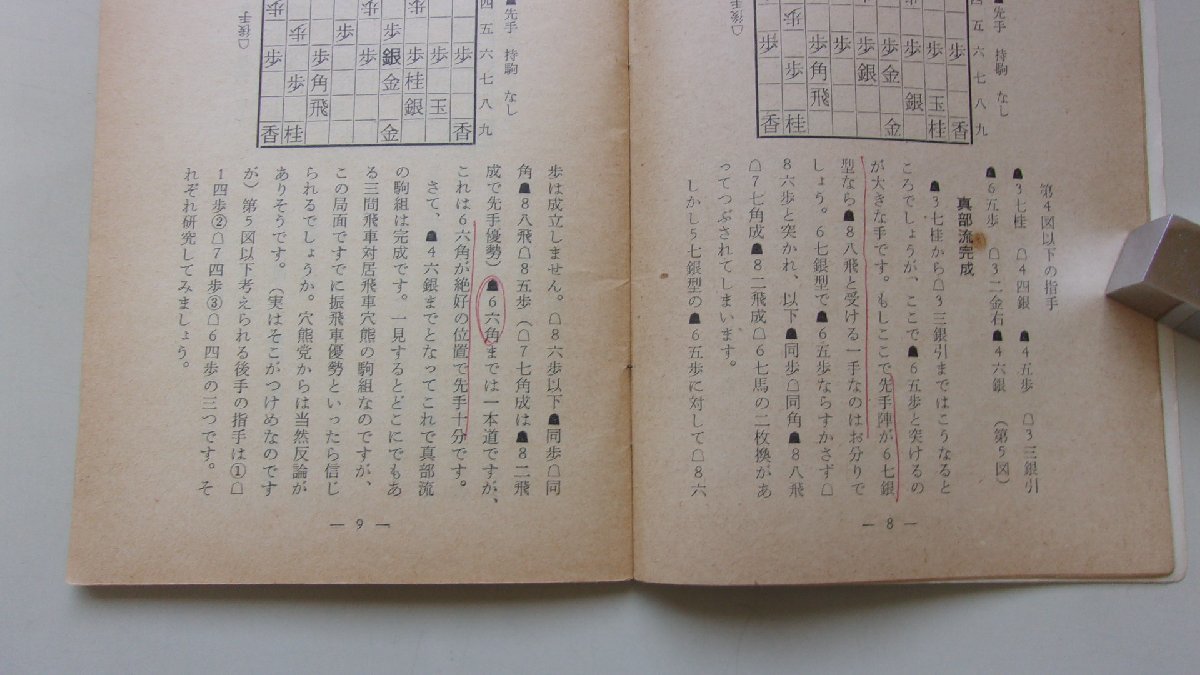 第4図以下の指手
☗3七桂 ☖4四銀 ☗4五歩 ☖3三銀引
☗6五歩 ☖3二金右 ☗4六銀 (第5図)
真部流完成
☗3七桂から☖3三銀引まではこうなると
ころでしょうが、ここで☗6五歩と突けるの
が大きな手です。もしここで先手陣が6七銀
型なら☗8八飛と受ける一手なのはお分りで
しょう。6七銀型で☗6五歩ならすかさず☖
8六歩と突かれ、以下☗同歩☖同角☗8八飛
☖7七角成☗8二飛成☖6七馬の二枚換があ
ってつぶされてしまいます。
しかし5七銀型の☗6五歩に対して☖8六
― 8 ―
☗先手 持駒 なし
四 五 六 七 八 九
☖後手
歩は成立しません。☖8六歩以下☗同歩☖同
角☗8八飛☖8五歩(☖7七角成は☗8二飛
成で先手優勢)☗6六角までは一本道ですが、
これは6六角が絶好の位置で先手十分です。
さて、☗4六銀までとなってこれで真部流
の駒組は完成です。一見するとどこにでもあ
る三間飛車対居飛車穴熊の駒組なのですが、
この局面ですでに振飛車優勢といったら信じ
られるでしょうか。穴熊党からは当然反論が
ありそうです。(実はそこがつけめなのです
が)第5図以下考えられる後手の指手は①☖
1四歩②☖7四歩③☖6四歩の三つです。そ
れぞれ研究してみましょう。
― 9 ―
☗先手 持駒 なし
四 五 六 七 八 九
☖後手